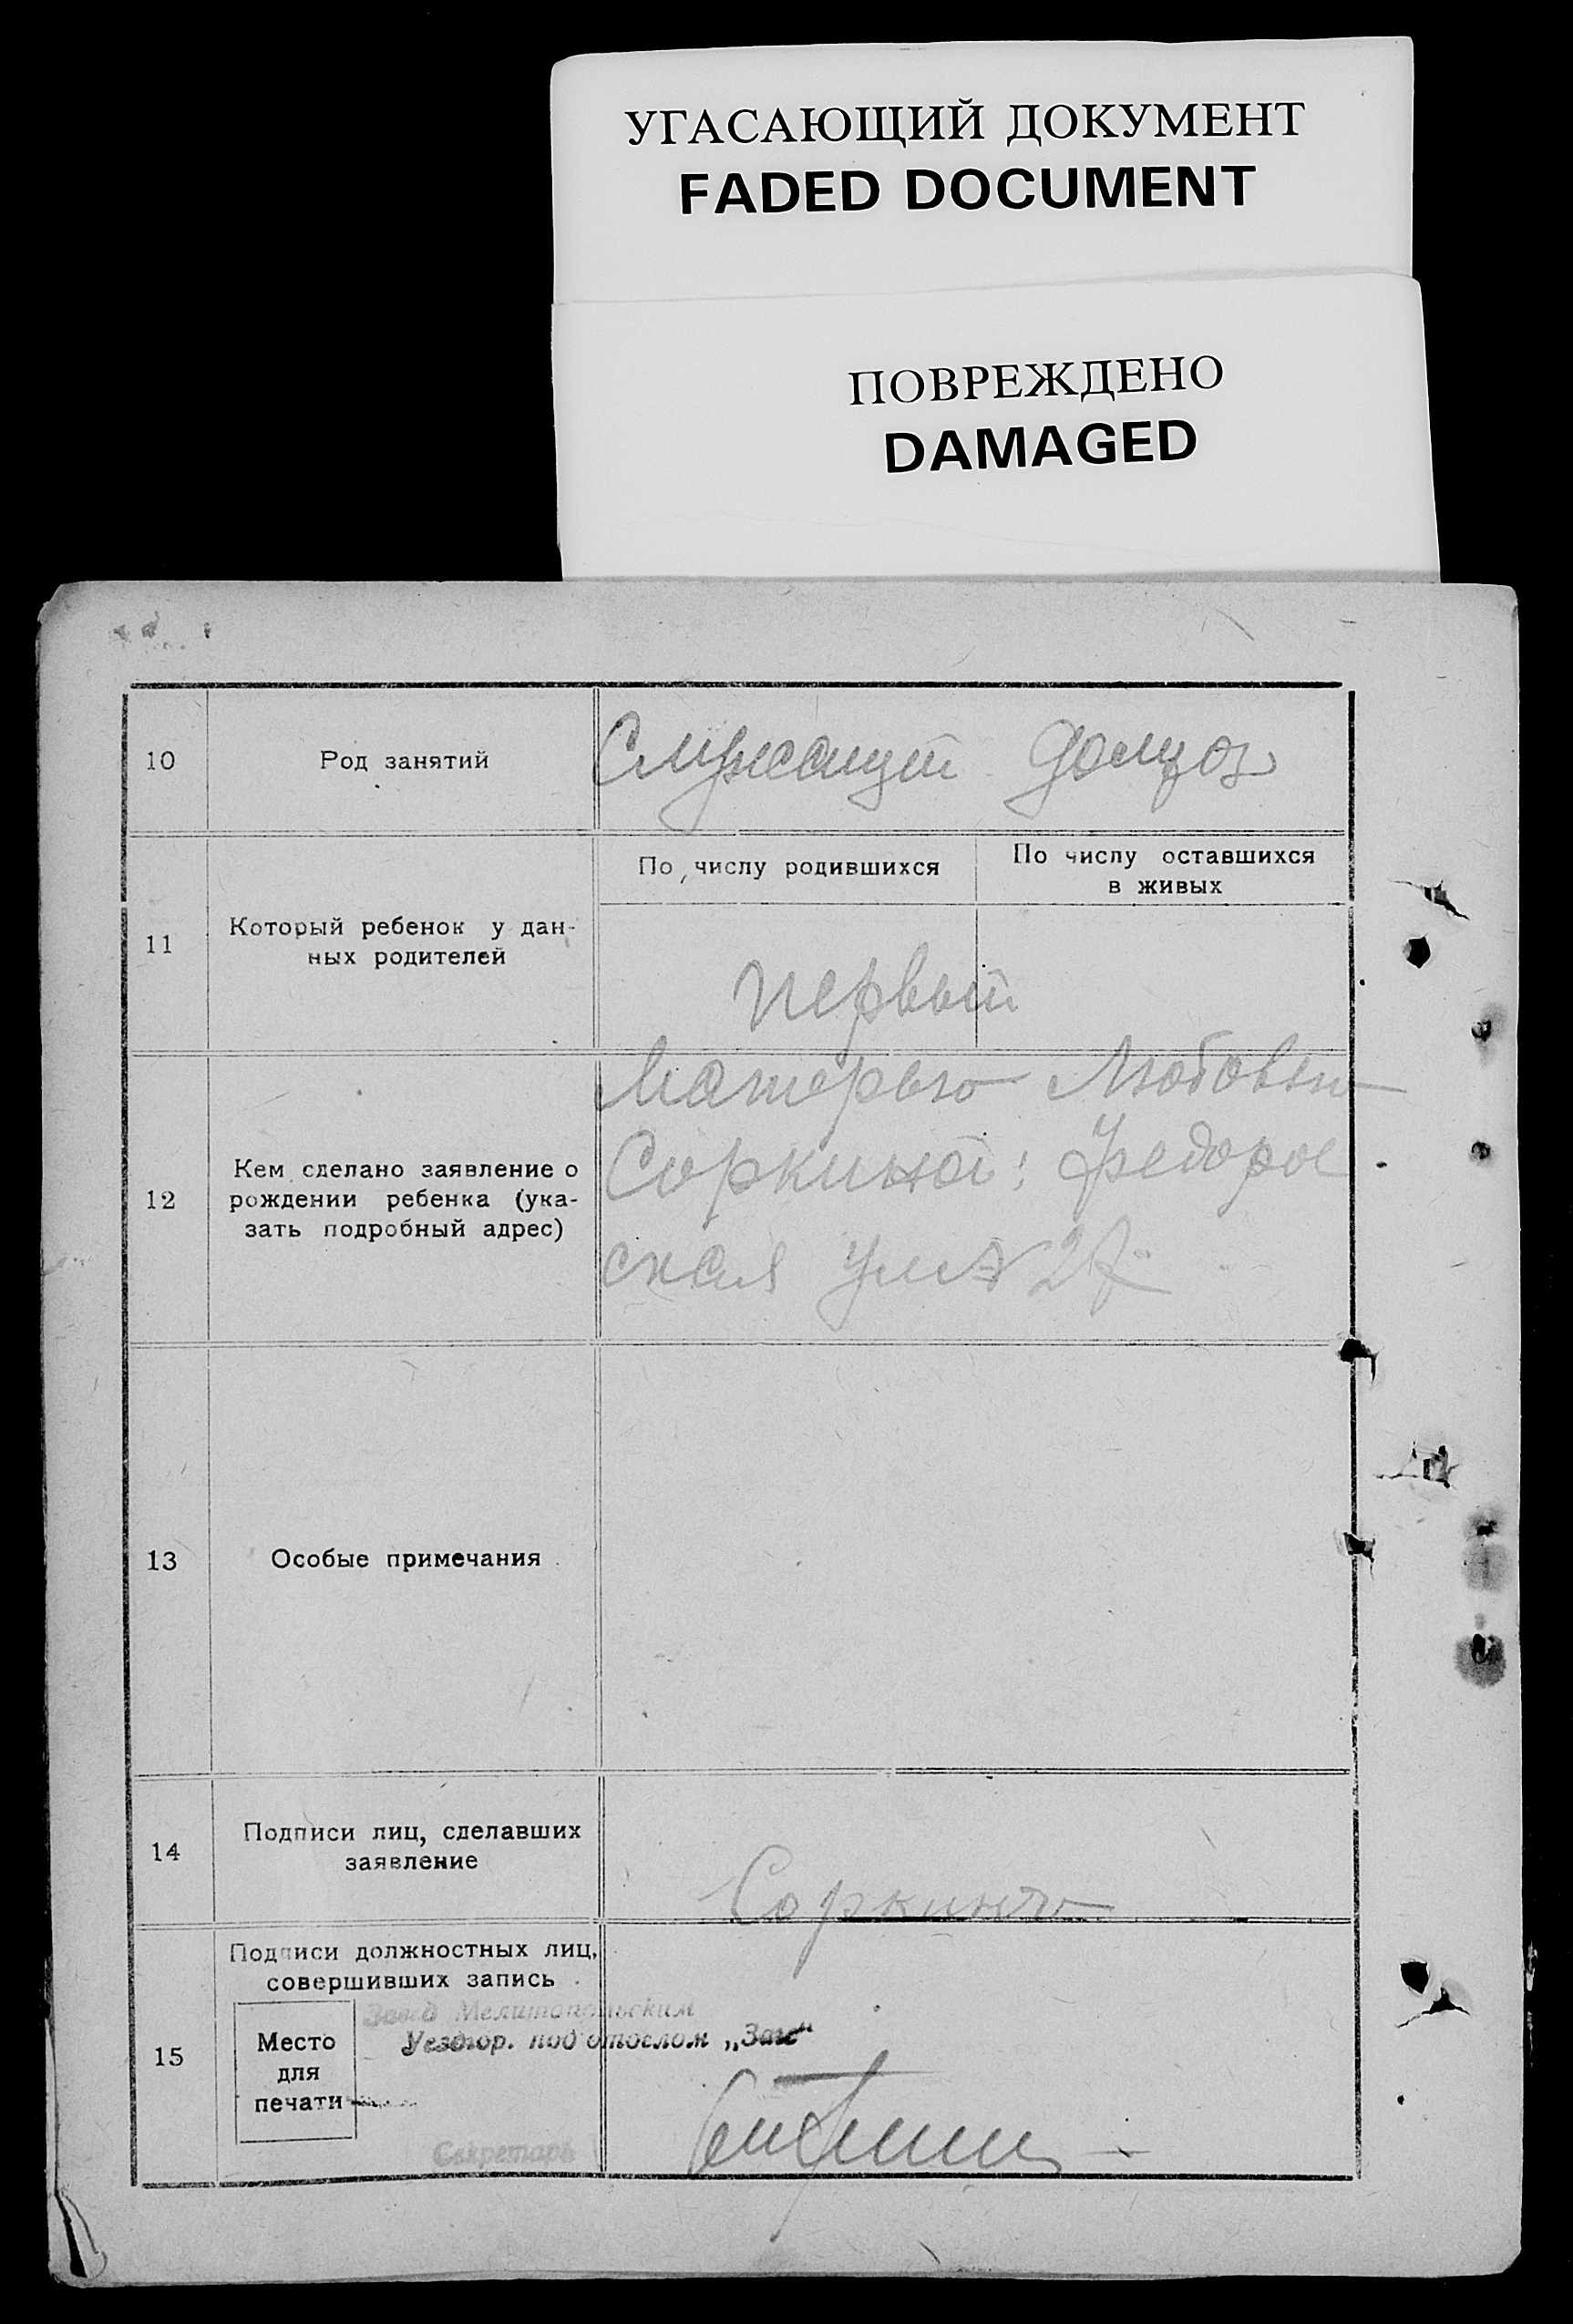 УГАСАЮЩИЙ ДОКУМЕНТ
FADED DOCUMENT
ПОВРЕЖДЕНО
DAMAGED
10
Род занятий
Служащий домхоз
11
Который ребенок у дан-
ных родителей
По числу родившихся
По числу оставшихся
в живых
первый
12
Кем сделано заявление о
рождении ребенка (ука-
зать подробный адрес)
Матерью Любовью
Соркиной: Федоров
ская ул № 27
13
Особые примечания
14
Подписи лиц, сделавших
заявление
Соркина
15
Подписи должностных лиц,
совершивших запись
Место
для
печати
Завед Мелитопольским
Уездгор. подотделом „Загс"
Секретарь